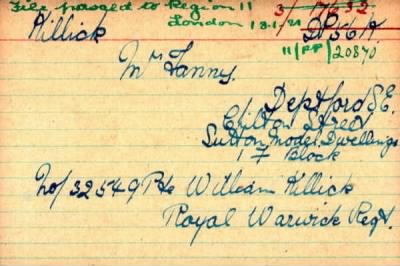 File passed to Region 11
London 13.1.21
3/ 17632
Killick
DP56A.
11/PP/20870
Mrs Fanny.
Deptford S.E.
Chilton Street
Sutton Model Dwellings
17 Block
No/32549 Pte William Killick
Royal Warwick Regt.